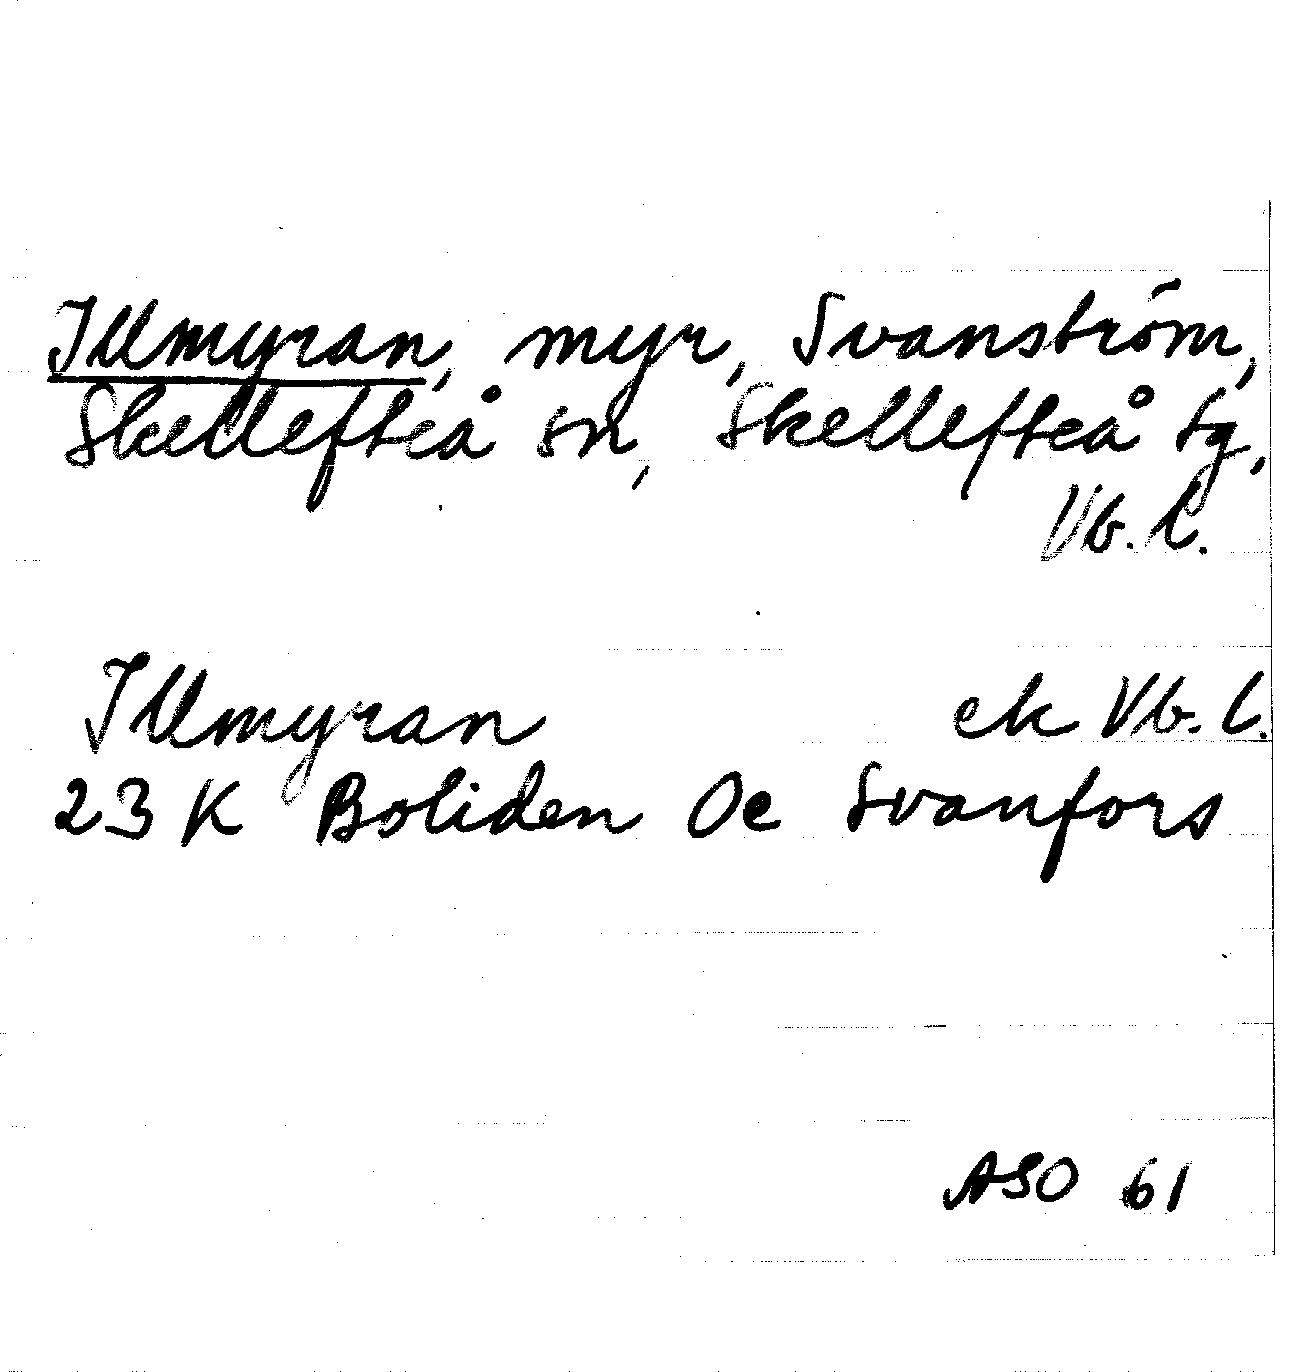 Illmyran, myr, Svanström,
Skellefteå sn, Skellefteå tg,
Vb. l.
Illmyran ek Vb. l.
23 K Boliden Oc Svanfors
ASO 61